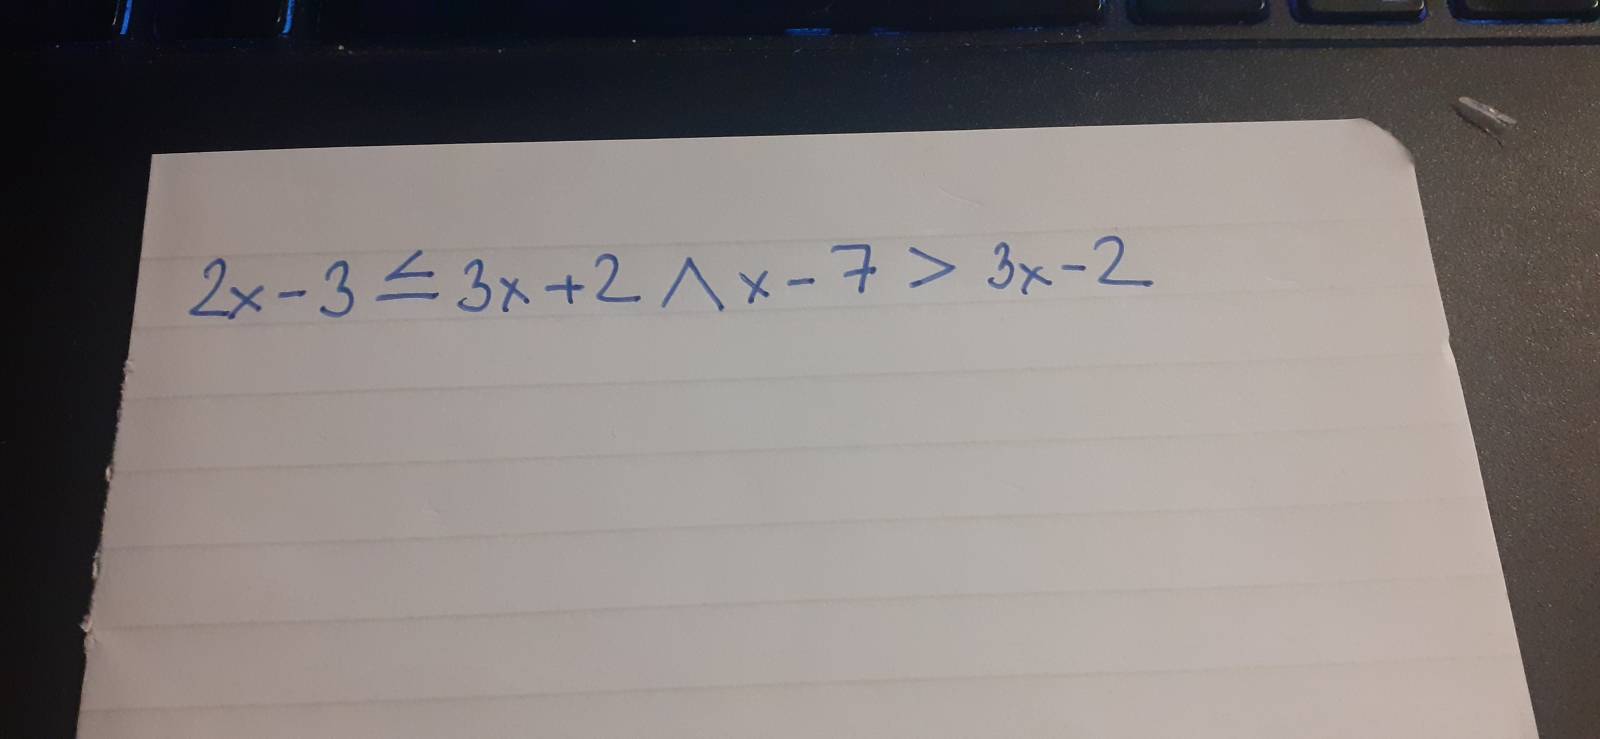 2x-3 ≤ 3x+2 ∧ x-7 > 3x-2